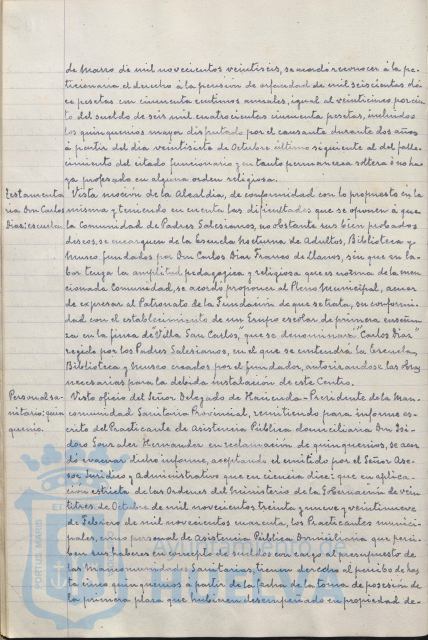 de Marzo de mil novecientos veintiseis, se acordó reconocer á la pe-
ticionaria el derecho á la pensión de orfandad de mil seiscientas do-
ce pesetas con cincuenta centimos anuales, igual al veinticinco por cien-
to del sueldo de seis mil cuatrocientas cincuenta pesetas, incluidos
los quinquenios mayor disfrutado por el causante durante dos años
á partir del dia veintisiete de Octubre último siguiente al del falle-
cimiento del citado funcionario y en tanto permanezca soltera ó no ha-
ya profesado en alguna orden religiosa.
Testamenta
ria Don Carlos
Diaz; escuela.
Vista moción de la Alcaldia, de conformidad con lo propuesto en la
misma y teniendo en cuenta las dificultades que se oponen á que
la Comunidad de Padres Salesianos, no obstante sus bien probados
deseos, se encarguen de la Escuela Nocturna de Adultos, Biblioteca y
Museo fundados por Don Carlos Diaz Franco de Llanos, sin que su la-
bor tenga la amplitud pedagogica y religiosa que es norma de la men-
cionada Comunidad, se acordó proponer al Pleno Municipal, acuer-
de expresar al Patronato de la Fundación de que se trata, su conformi-
dad con el establecimiento de un Grupo escolar de primera enseñan-
za en la finca de "Villa San Carlos", que se denominará "Carlos Diaz"
regido por los Padres Salesianos, en el que se contendrá la Escuela,
Biblioteca y Museo creados por el fundador, autorizandose las obras
necesarias para la debida instalación de este Centro.
Personal sa-
nitario; quin
quenio.
Visto oficio del Señor Delegado de Hacienda-Presidente de la Man-
comunidad Sanitaria Provincial, remitiendo para informe es-
crito del Practicante de Asistencia Pública domiciliaria Don Isi-
doro Hernandez en reclamación de quinquenios, se acor-
dó evacuar dicho informe, aceptando el emitido por el Señor Ase-
sor Juridico y Administrativo que en ciencia dice: que en aplica-
ción estricta de las Ordenes del Ministerio de la Gobernación de vein-
titres de Octubre de mil novecientos treinta y nueve y veintinueve
de Febrero de mil novecientos cuarenta, los Practicantes munici-
pales, como personal de Asistencia Pública Domiciliaria que perci-
ben sus haberes en concepto de sueldos con cargo al presupuesto de
las Mancomunidades Sanitarias, tienen derecho al percibo de has-
ta cinco quinquenios á partir de la fecha de la toma de posesión de
la primera plaza que hubieren desempeñado en propiedad de-
PORTUS MARIS
HUELVA